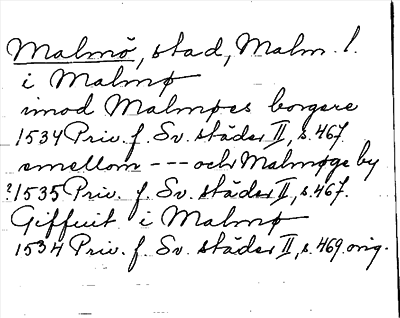 Malmö, stad, Malm. l.
i Malmø
imod Malmøes borgere
1534 Priv. f. Sv. städer II, s. 467.
emellom --- och Malmøge by
?1535 Priv. f. Sv. städer II, s. 467.
Giffuit i Malmø
1534 Priv. f. Sv. städer II, s. 469. orig.